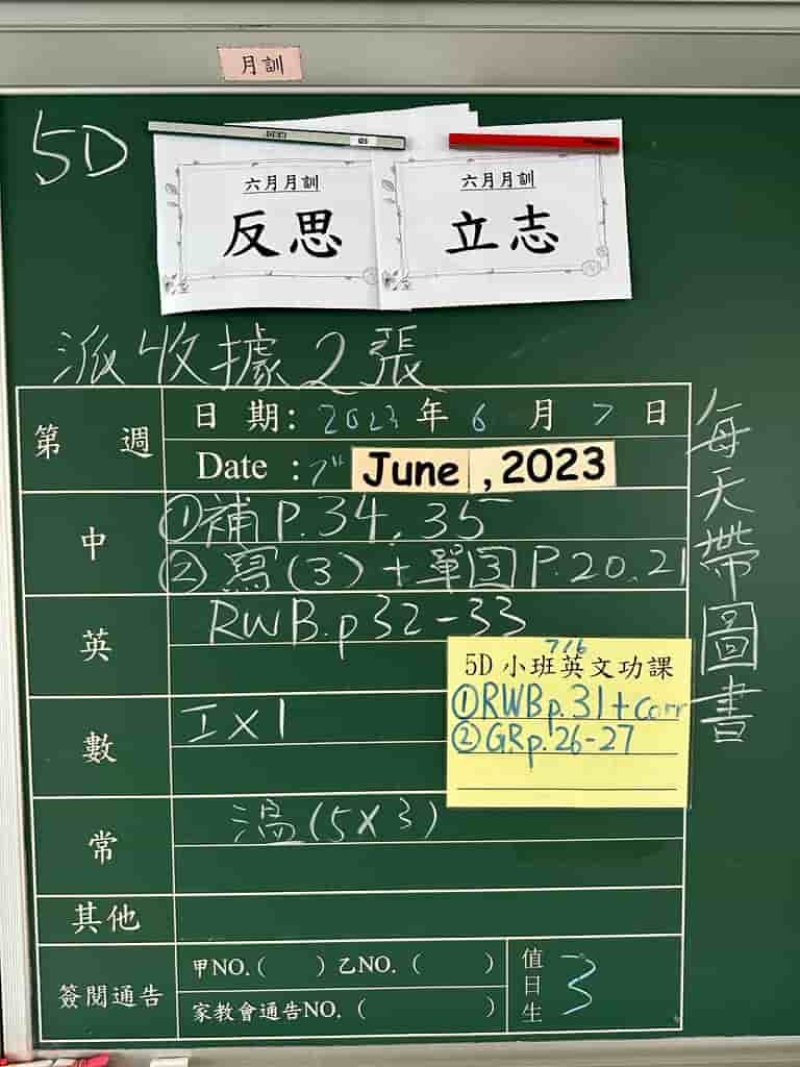 月訓
5D
六月月訓
反思
六月月訓
立志
派收據2張
第 週
日 期: 2023 年 6 月 7 日
Date : 7th June , 2023
中
①補P.34, 35
②寫(3)+單図P.20.21
英
RWB.p32-33
7/6
5D 小班英文功課
①RWBp.31+corr
②GRp.26-27
數
工X1
常
溫(5X3)
其他
簽閱通告
甲NO.( ) 乙NO. ( )
家教會通告NO. ( )
值日生 3
每天帶圖書